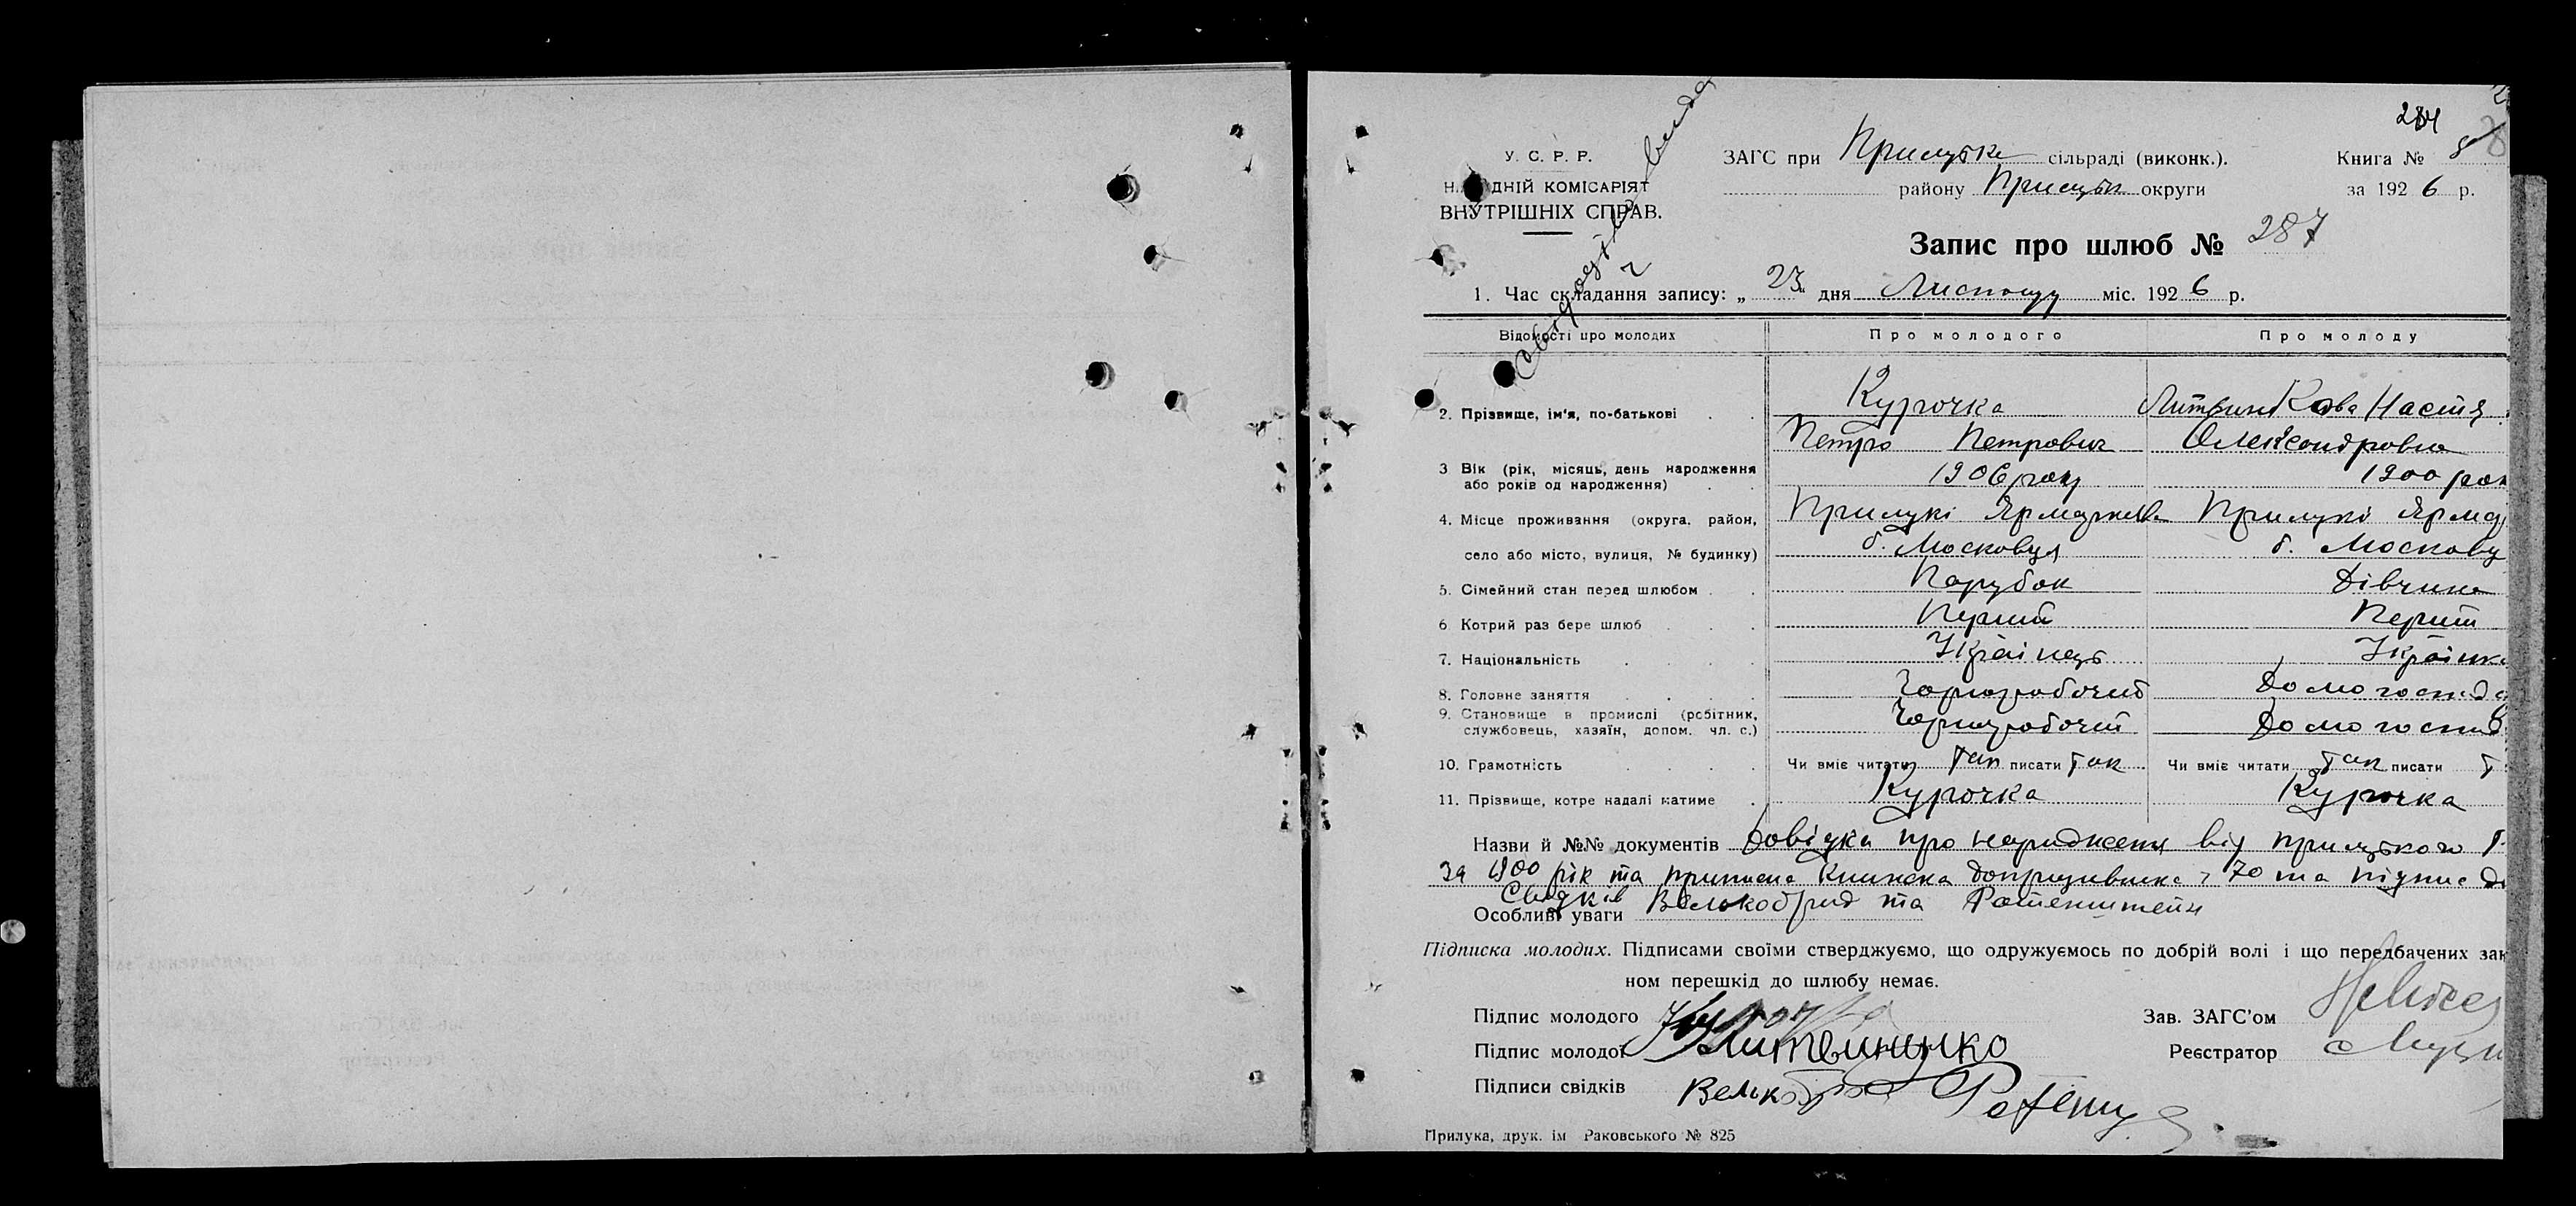 284
У. С. Р. Р.
НАРОДНІЙ КОМІСАРІЯТ
ВНУТРІШНІХ СПРАВ.
ЗАГС при Прилуцьке сільраді (виконк.).
району Прилуцьк округи
Книга № 8
за 1926 р.
Запис про шлюб № 287
1. Час складання запису: „23“ дня Листопаду міс. 1926 р.
Відомості про молодих Про молодого Про молоду
2. Прізвище, ім'я, по-батькові Курочка Литвинкова Настя
Петро Петрович Олександровна
3 Вік (рік, місяць, день народження
або років од народження) 1906 року 1900 рок
4. Місце проживання (округа, район, Прилукі Ярмаркова Прилукі Ярмар
село або місто, вулиця, № будинку) б. Московця б. Московц
5. Сімейний стан перед шлюбом Парубок Дівчина
6. Котрий раз бере шлюб Перший Перший
7. Національність Українець Українка
8. Головне заняття Чорноробочий Домогоспод
9. Становище в промислі (робітник,
службовець, хазяїн, допом. чл. с.) Чорноробочий Домогоспо
10. Грамотність Чи вміє читати так писати так Чи вміє читати так писати т
11. Прізвище, котре надалі матиме Курочка Курочка
Назви й №№ документів Довідка про народження від Прилуцького
За 1900 рік та приписна Книжка допризивника 70 та підпис
Свідків Велькобрид та Ротенштейн
Особливі уваги
Підписка молодих. Підписами своїми стверджуємо, що одружуємось по добрій волі і що передбачених зак
ном перешкід до шлюбу немає.
Підпис молодого Курочка
Зав. ЗАГС'ом
Підпис молодої Литвиненко
Реєстратор
Підписи свідків
Прилука, друк. ім Раковського № 825